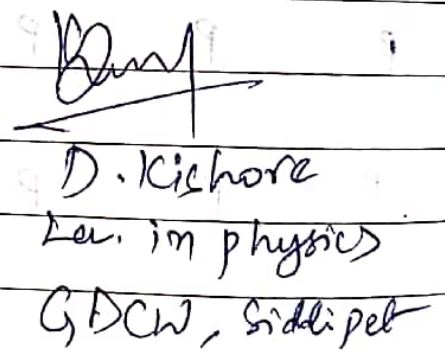 D. Kishore
Lec. in physics
GDCW, Siddipet